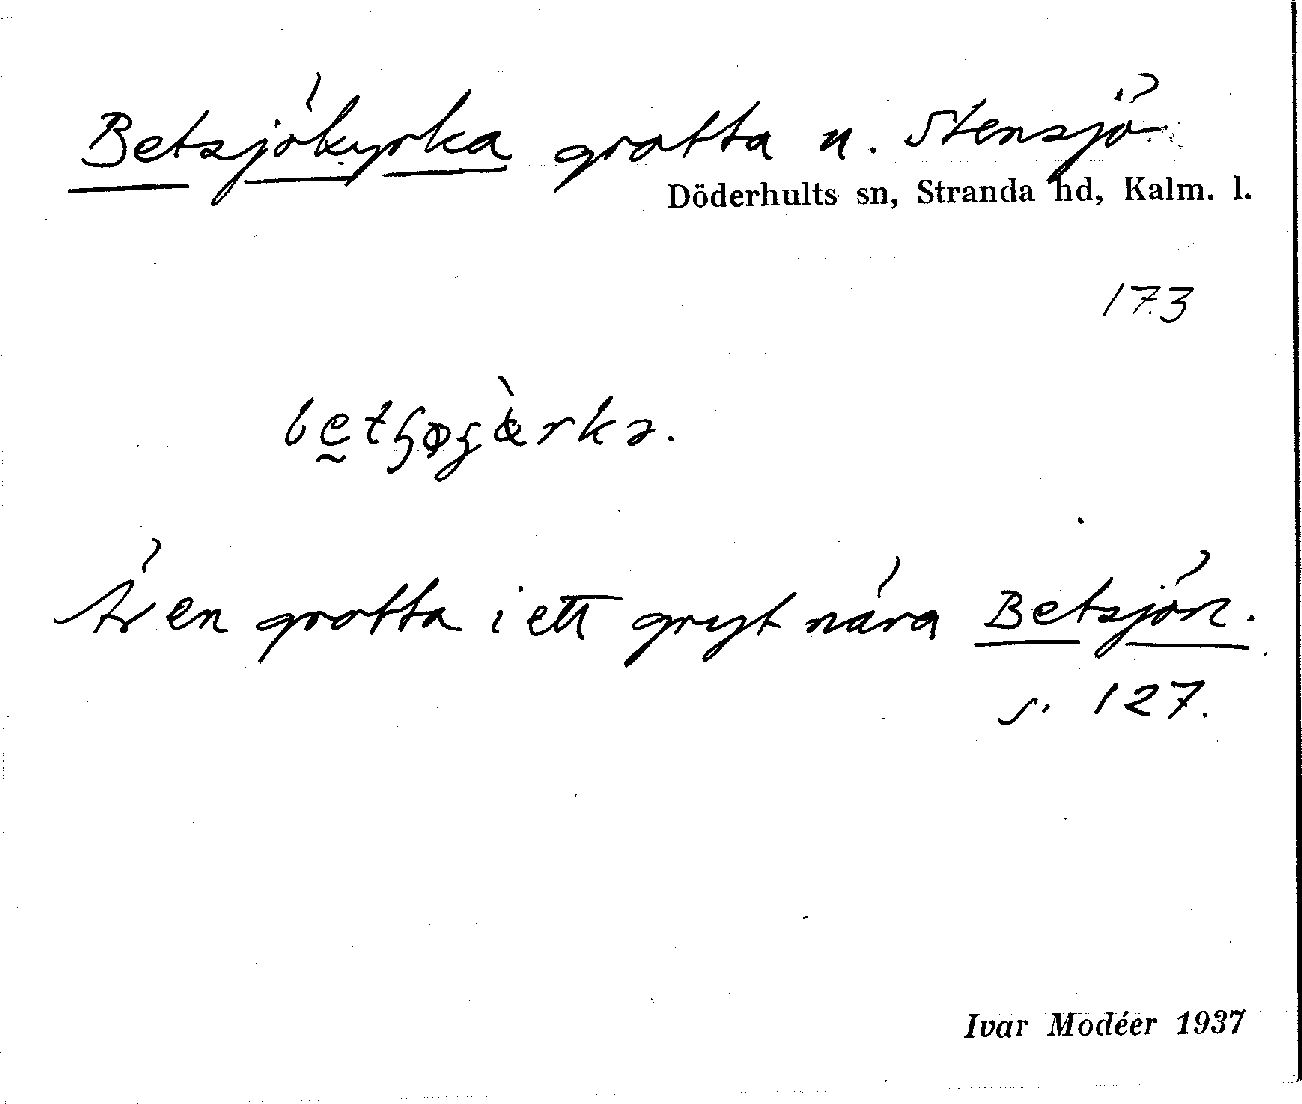 Betsjökyrka grotta u. Stensjö
Döderhults sn, Stranda hd, Kalm. l.
173
Är en grotta i ett gryt nära Betsjön.
s. 127.
Ivar Modéer 1937